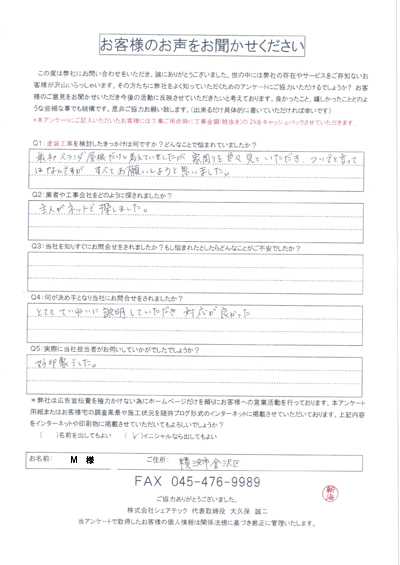 お客様のお声をお聞かせください
この度は弊社にお問い合わせをいただき、誠にありがとうございました。世の中には弊社の存在やサービスをご存知ないお
客様が沢山いらっしゃいます。その方たちに弊社をよく知っていただくためのアンケートにご協力いただけるでしょうか? お客
様のご意見をお聞かせいただき今後の活動に反映させていただきたいと考えております。良かったこと、嬉しかったことどのよ
うな些細な事でも結構です。是非ご協力お願い致します。(出来るだけ具体的に書いていただければ幸いです)
*本アンケートにご記入いただいたお客様には工事ご用命時に工事金額(税抜き)の2%をキャッシュバックさせていただきます。
Q1:塗装工事を検討したきっかけは何ですか?どんなことで悩まれていましたか?
最初ベランダ屋根だけを考えていましたが 家周りを見ていただき、ついでと言って
はなんですが すべてお願いしようと思いました。
Q2:業者や工事会社をどのように探されましたか?
主人がネットで探しました。
Q3:当社を知りすぐにお問合せをされましたか?もし悩まれたとしたらどんなことがご不安でしたか?
Q4:何が決め手となり当社にお問合せをされましたか?
とても ていねいに説明していただき 対応が良かった
Q5:実際に当社担当者がお伺いしていかがでしたでしょうか?
好印象でした。
*弊社は広告宣伝費を極力かけない為にホームページだけを頼りにお客様への営業活動を行っております。本アンケート
用紙またはお客様宅の調査風景や施工状況を随時ブログ形式のインターネットに掲載させていただいております。上記内容
をインターネットや印刷物に掲載させていただいてもよろしいでしょうか?
( )名前を出してもよい (✓)イニシャルなら出してもよい
お名前: M 様 ご住所: 横浜市金沢区
FAX 045-476-9989
ご協力ありがとうございました。
株式会社シェアテック 代表取締役 大久保 誠二
当アンケートで取得したお客様の個人情報は関係法規に基づき厳正に管理いたします。